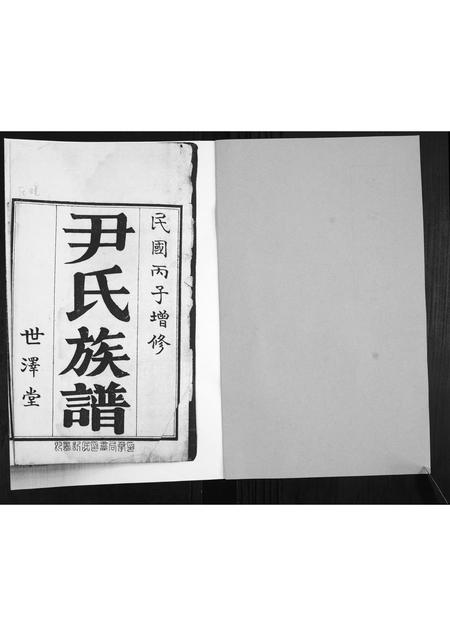 民國丙子增修
尹氏族譜
世澤堂